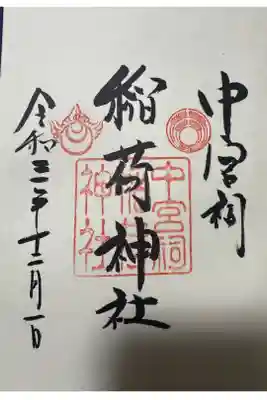 中宮祠
稲荷神社
令和三年十二月一日
中宮祠
神社